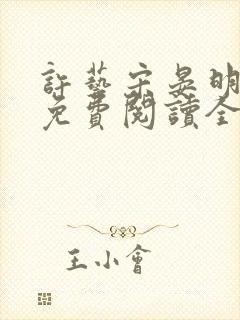 許藝宋晏明
免費閱讀全
王小會